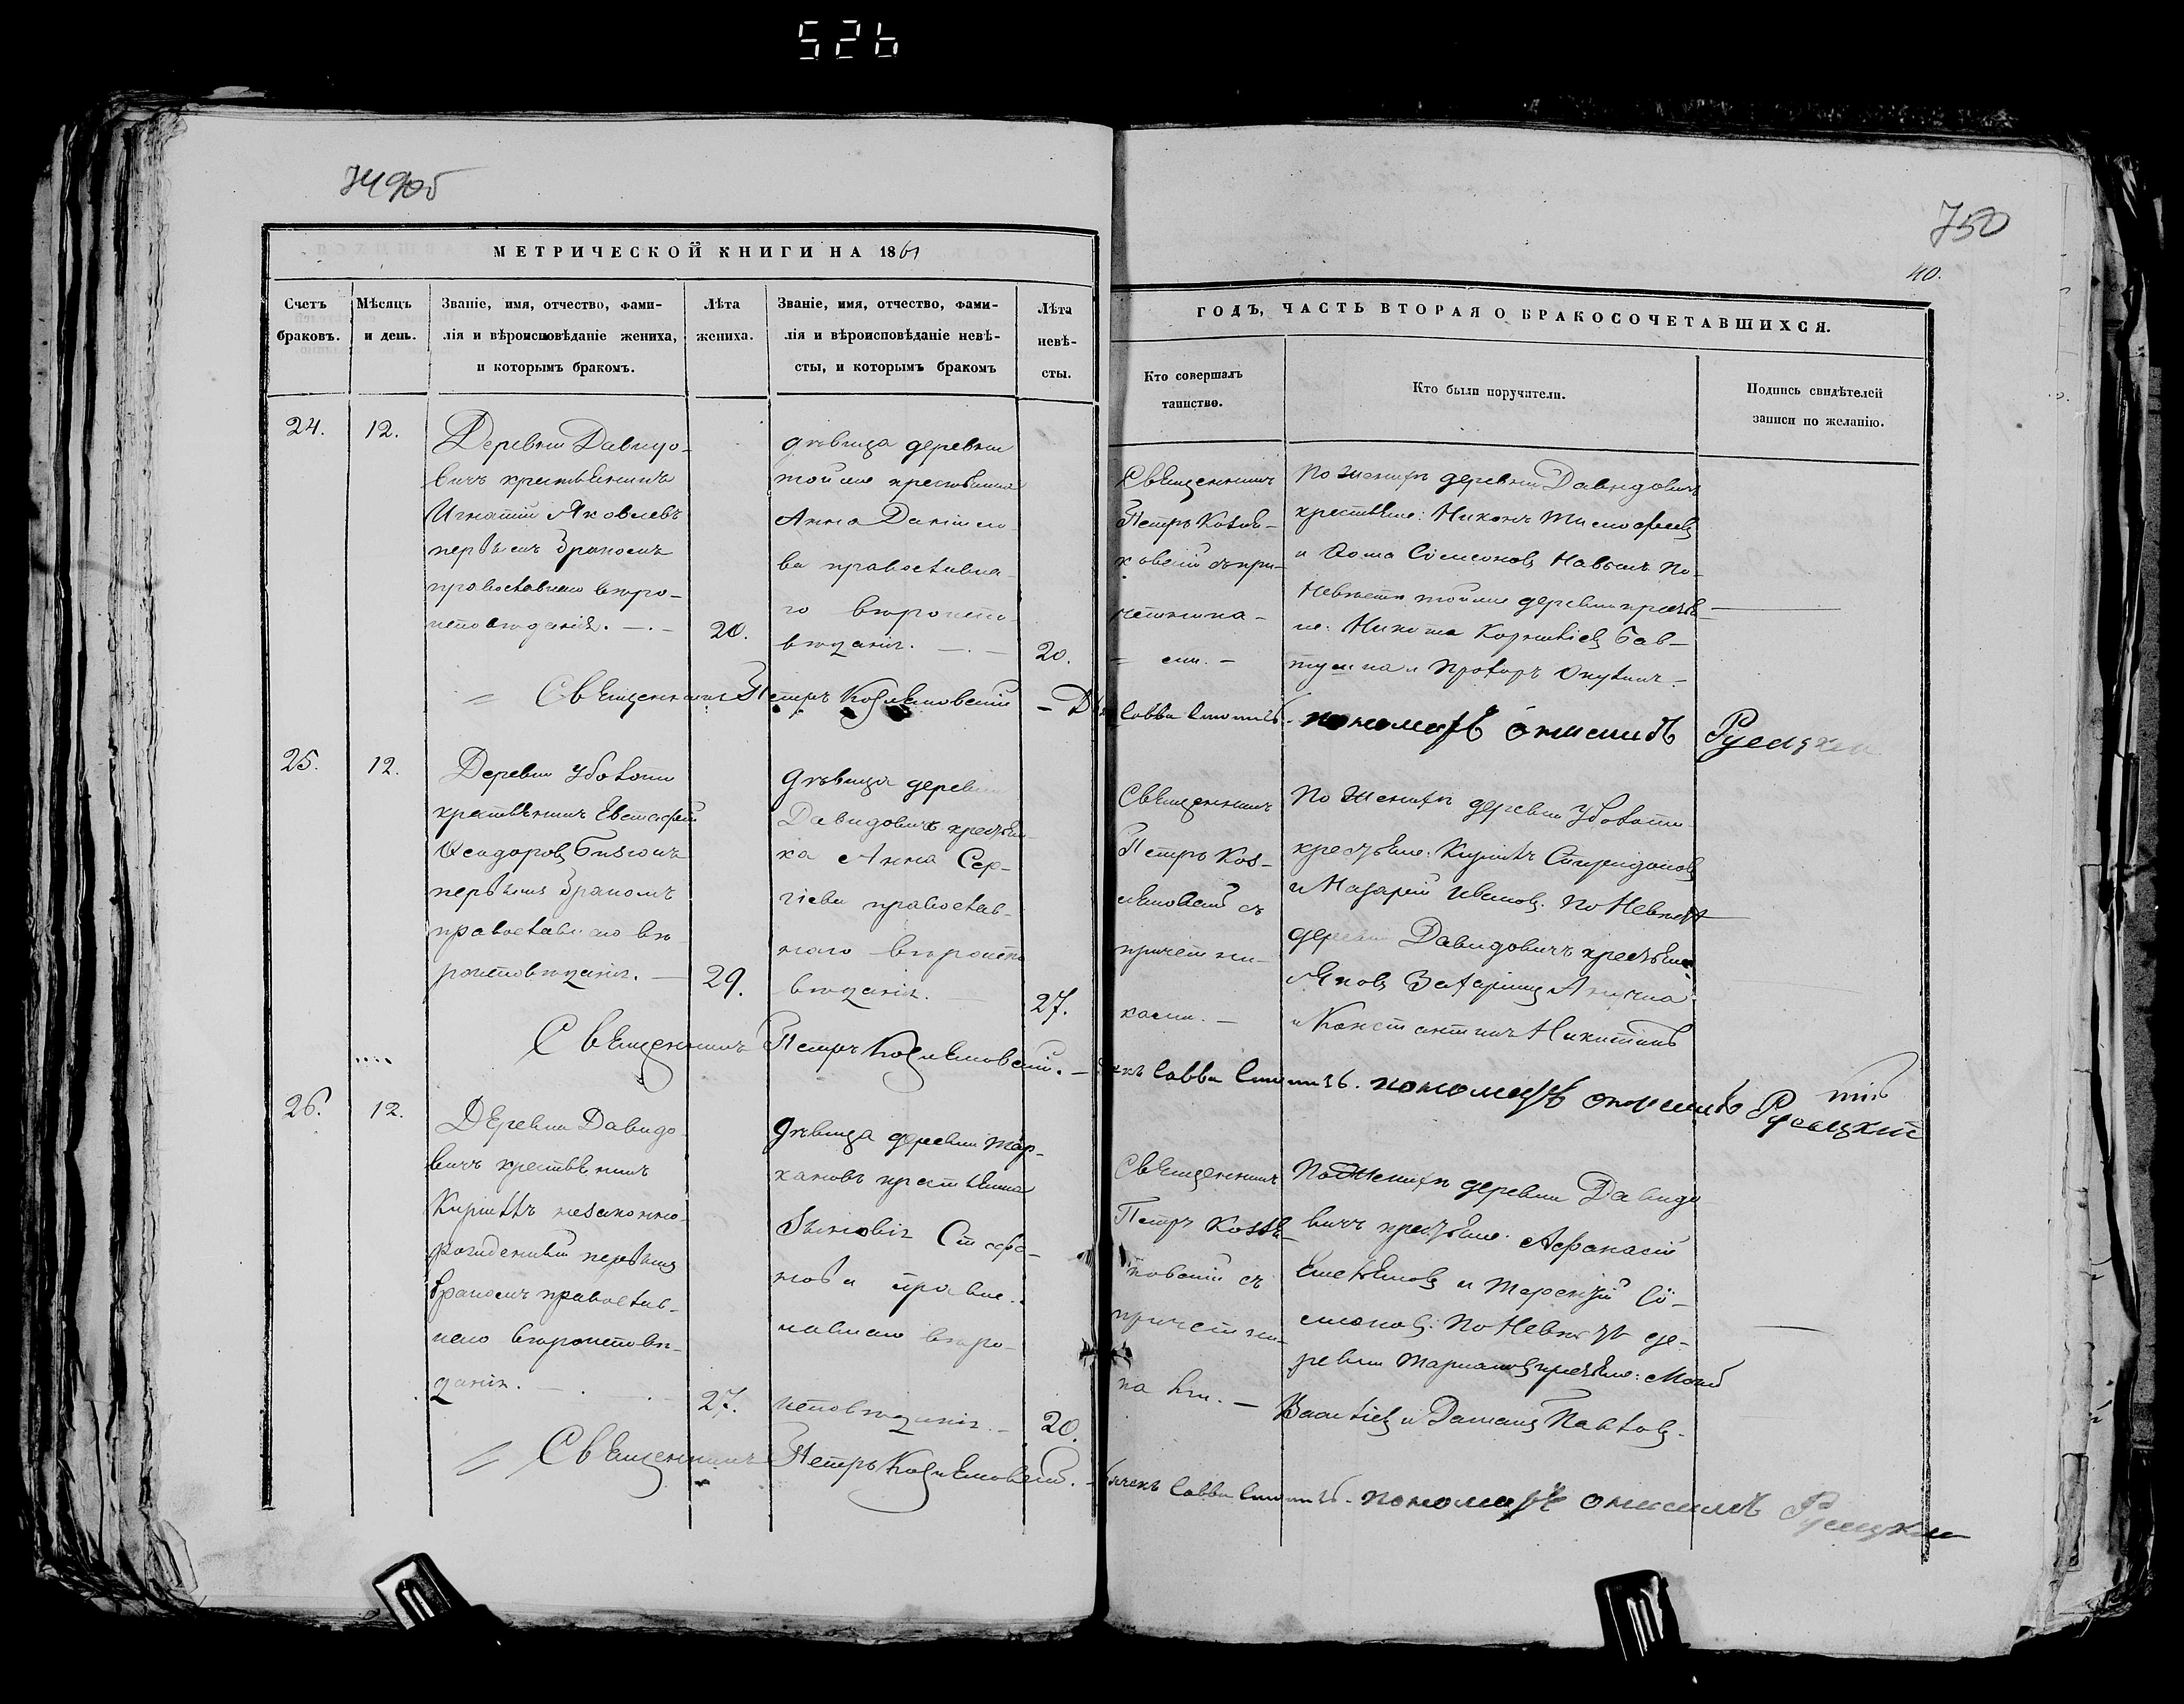 526
749об
750
40.
МЕТРИЧЕСКОЙ КНИГИ НА 1861
Счетъ браковъ.
Мѣсяцъ и день.
Званіе, имя, отчество, фами-
лія и вѣроисповѣданіе жениха,
и которымъ бракомъ.
Лѣта
жениха.
Званіе, имя, отчество, фами-
лія и вѣроисповѣданіе невѣ-
сты, и которымъ бракомъ
Лѣта
невѣ-
сты.
ГОДЪ, ЧАСТЬ ВТОРАЯ О БРАКОСОЧЕТАВШИХСЯ.
Кто совершалъ
таинство.
Кто были поручители.
Подпись свидѣтелей
записи по желанію.
24.
12.
Деревни Давидо-
вичъ крестьянинъ
Игнатій Яковлевъ
первымъ бракомъ
православнаго вѣро-
исповѣданія.
20.
дѣвица деревни
тойже крестьянка
Анна Даніило-
ва православна-
го вѣроиспо-
вѣданія.
20.
Священникъ
Петръ Козля-
ковскій съ при-
четника-
ми.
По женихѣ деревни Давидовичъ
крестьяне: Никонъ Тимофеевъ
и Фома Самсоновъ По-
невѣстѣ тойже деревни крестья-
не: Никита Корнѣевъ
и Прохоръ
Священникъ Петръ Козляковскій - Савва
пономарь Онисимъ Русецкій
25.
12.
Деревни Убо
крестьянинъ Евстафій
Ѳеодоровъ
первымъ бракомъ
православнаго вѣ-
роисповѣданія.
29.
дѣвица деревни
Давидовичъ крестьян-
ка Анна Сер-
гіева православ-
наго вѣроиспо-
вѣданія.
27.
Священникъ
Петръ Коз-
ляковскій съ
причетни-
ками.
По женихѣ деревни
крестьяне: Кириллъ Спиридоновъ
и Назарій Ивановъ. По Невѣстѣ
деревни Давидовичъ крестьяне
Яковъ Захаринъ
и Константинъ Никитинъ
Священникъ Петръ Козляковскій. - Савва
пономарь Онисимъ Русецкій
26.
12.
Деревни Давидо-
вичъ крестьянинъ
Кириллъ незаконно-
рожденный первымъ
бракомъ православ-
наго вѣроисповѣ-
данія.
27.
дѣвица деревни Тар-
кановъ крестьянка
Зиновія Стефа-
нова право-
славнаго вѣро-
исповѣданія.
20.
Священникъ
Петръ Козля-
ковскій съ
причетни-
ками.
По Женихѣ деревни Давидо-
вичъ крестьяне: Афанасій
Емельяновъ и Терентій Са-
мсоновъ: По Невѣстѣ де-
ревни крестьяне:
и Даміанъ Павловъ.
Священникъ Петръ Козляковскій. - Дьячекъ Савва
пономарь Онисимъ Русецкій